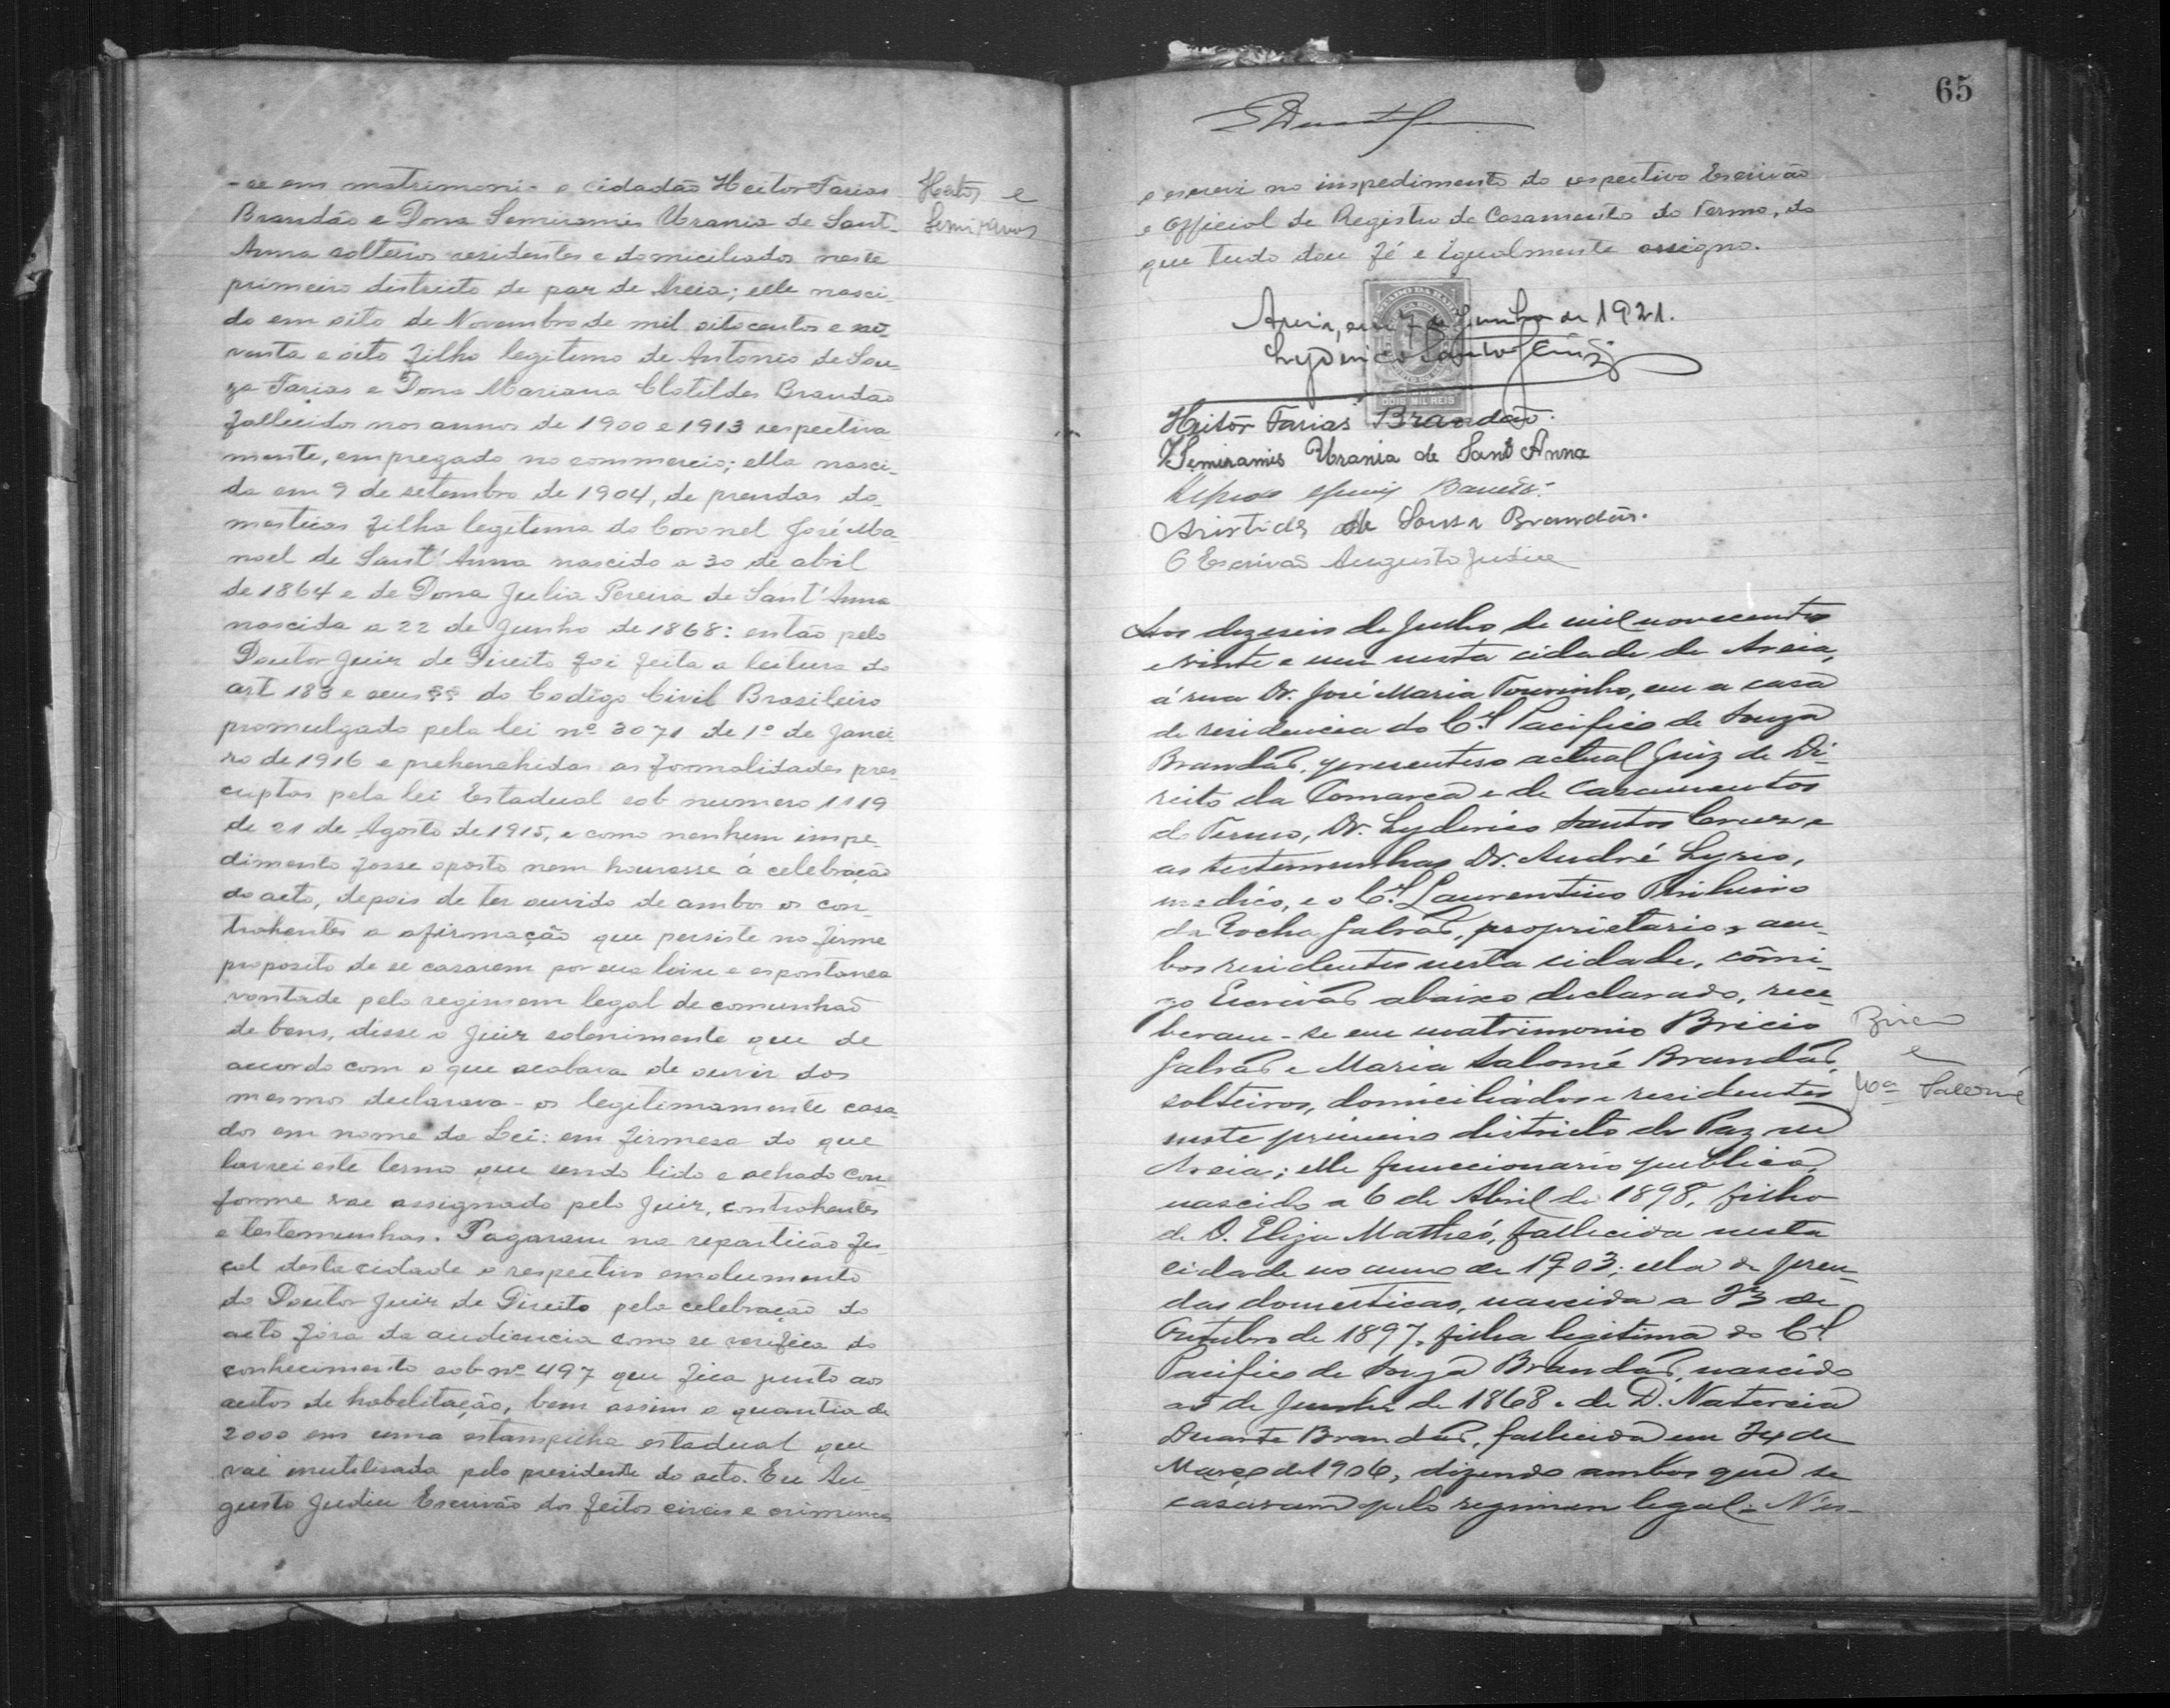 -se em matrimonio o cidadão Heitor Farias
Brandão e Dona Semiramis Urania de Sant-
Anna solteiros residentes e domiciliados neste
primeiro districto de paz de Areia; elle nasci-
do em oito de Novembro de mil oitocentos e no-
venta e oito filho legitimo de Antonio de Sou-
za Farias e Dona Mariana Clotildes Brandão
fallecidos nos annos de 1900 e 1913 respectiva
mente, empregado no commercio; ella nasci-
da em 9 de setembro de 1904, de prendas do-
mesticas filha legitima do Coronel José Ma-
noel de Sant'Anna nascido a 30 de abril
de 1864 e de Dona Julia Pereira de Sant'Anna
nascida a 22 de Junho de 1868: então pelo
Doutor Juiz de Direito foi feita a leitura do
art 183 e seus §§ do Codigo Civil Brasileiro
promulgado pela lei nº 3071 de 1º de Janei-
ro de 1916 e prehenchidas as formalidades pres-
criptas pela lei Estadual sob numero 1119
de 21 de Agosto de 1915, e como nenhem impe-
dimento fosse oposto nem houvesse á celebração
do acto, depois de ter ouvido de ambos os con-
trahentes a afirmação que persiste no firme
proposito de se casarem por sua livre e espontanea
vontade pelo regimem legal de comunhão
de bens, disse o Juiz solenimente que de
accordo com o que acabava de ouvir dos
mesmos declarava-os legitimamente casa-
dos em nome da Lei: em firmesa do que
lavrei este termo que sendo lido e achado con-
forme vae assignado pelo Juiz, contrahentes
e testemunhas. Pagaram na repartição fis-
cal desta cidade o respectivo emolumento
do Doutor Juiz de Direito pela celebração do
acto fóra da audiencia como se verifica do
conhecimento sob nº 497 que fica junto aos
autos de habelitação, bem assim a quantia de
2000 em uma estampilha estadual que
vai inutilisada pelo presidente do acto. Eu Au-
gusto Judice Escrivão dos feitos civeis e crimineaes
Heitor e
Semiramis
65
o escrevi no impedimento do respectivo Escrivão
e Official de Registro de Casamento do Termo, do
que tudo dou fé e igualmente assigno.
Areia, em 7 de Junho de 1921.
Lyderico Santos Cruz
DOIS MIL REIS
Heitôr Farias Brandão.
Semiramis Urania de Sant Anna
Aristides de Sousa Brandão.
O Escrivão Augusto Judice
Aos dezeseis de Julho de mil novecentos
e vinte e um nesta cidade de Areia,
á rua Dr. José Maria Tourinho, em a casa
de residencia do Cel Pacifico de Souza
Brandão, presente o actual Juiz de Di-
reito da Comarca e de Casamentos
do Termo, Dr. Lyderico Santos Cruz, e
as testemunhas Dr. André Lyrio,
medico, e o Cel Laurentino Pinheiro
da Rocha Galvão, proprietario, am-
bos residentes nesta cidade, cômi-
go Escrivão abaixo declarado, rece-
beram-se em matrimonio Bricio
Galvão e Maria Salomé Brandão,
solteiros, domiciliados e residentes
neste primeiro districto de Paz de
Areia; elle funccionario publico,
nascido a 6 de Abril de 1898, filho
de D. Eliza Matheó, fallecida nesta
cidade no anno de 1903; ella de pren-
das domesticas, nascida a 23 de
Outubro de 1897, filha legitima do Cel
Pacifico de Souza Brandão, nascido
a 5 de Junho de 1868 e de D. Natercia
Duarte Brandão, fallecida em 24 de
Março de 1906, dizendo ambos que se
casavam pelo regimen legal. Nes-
Bricio
e
Ma Salomé